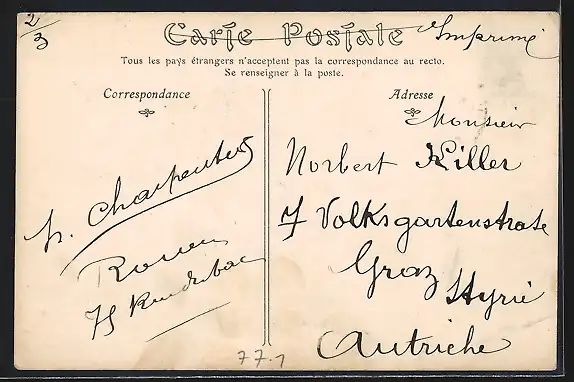 2/3
Carte Postale
Imprimé
Tous les pays étrangers n'acceptent pas la correspondance au recto.
Se renseigner à la poste.
Correspondance
Adresse
h. Charpentier
Rouen
75
Monsieur
Norbert Killer
7 Volksgartenstrase
Graz
Styrie
Autriche
77.1